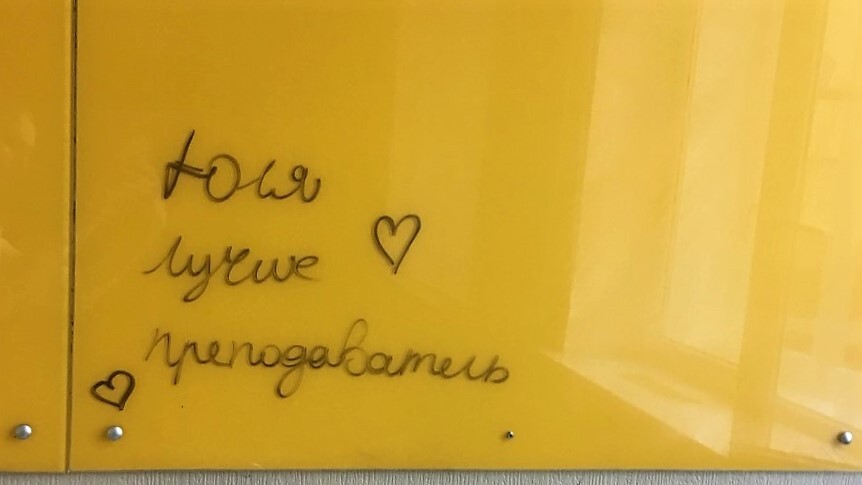 Юля
лучше
преподаватель